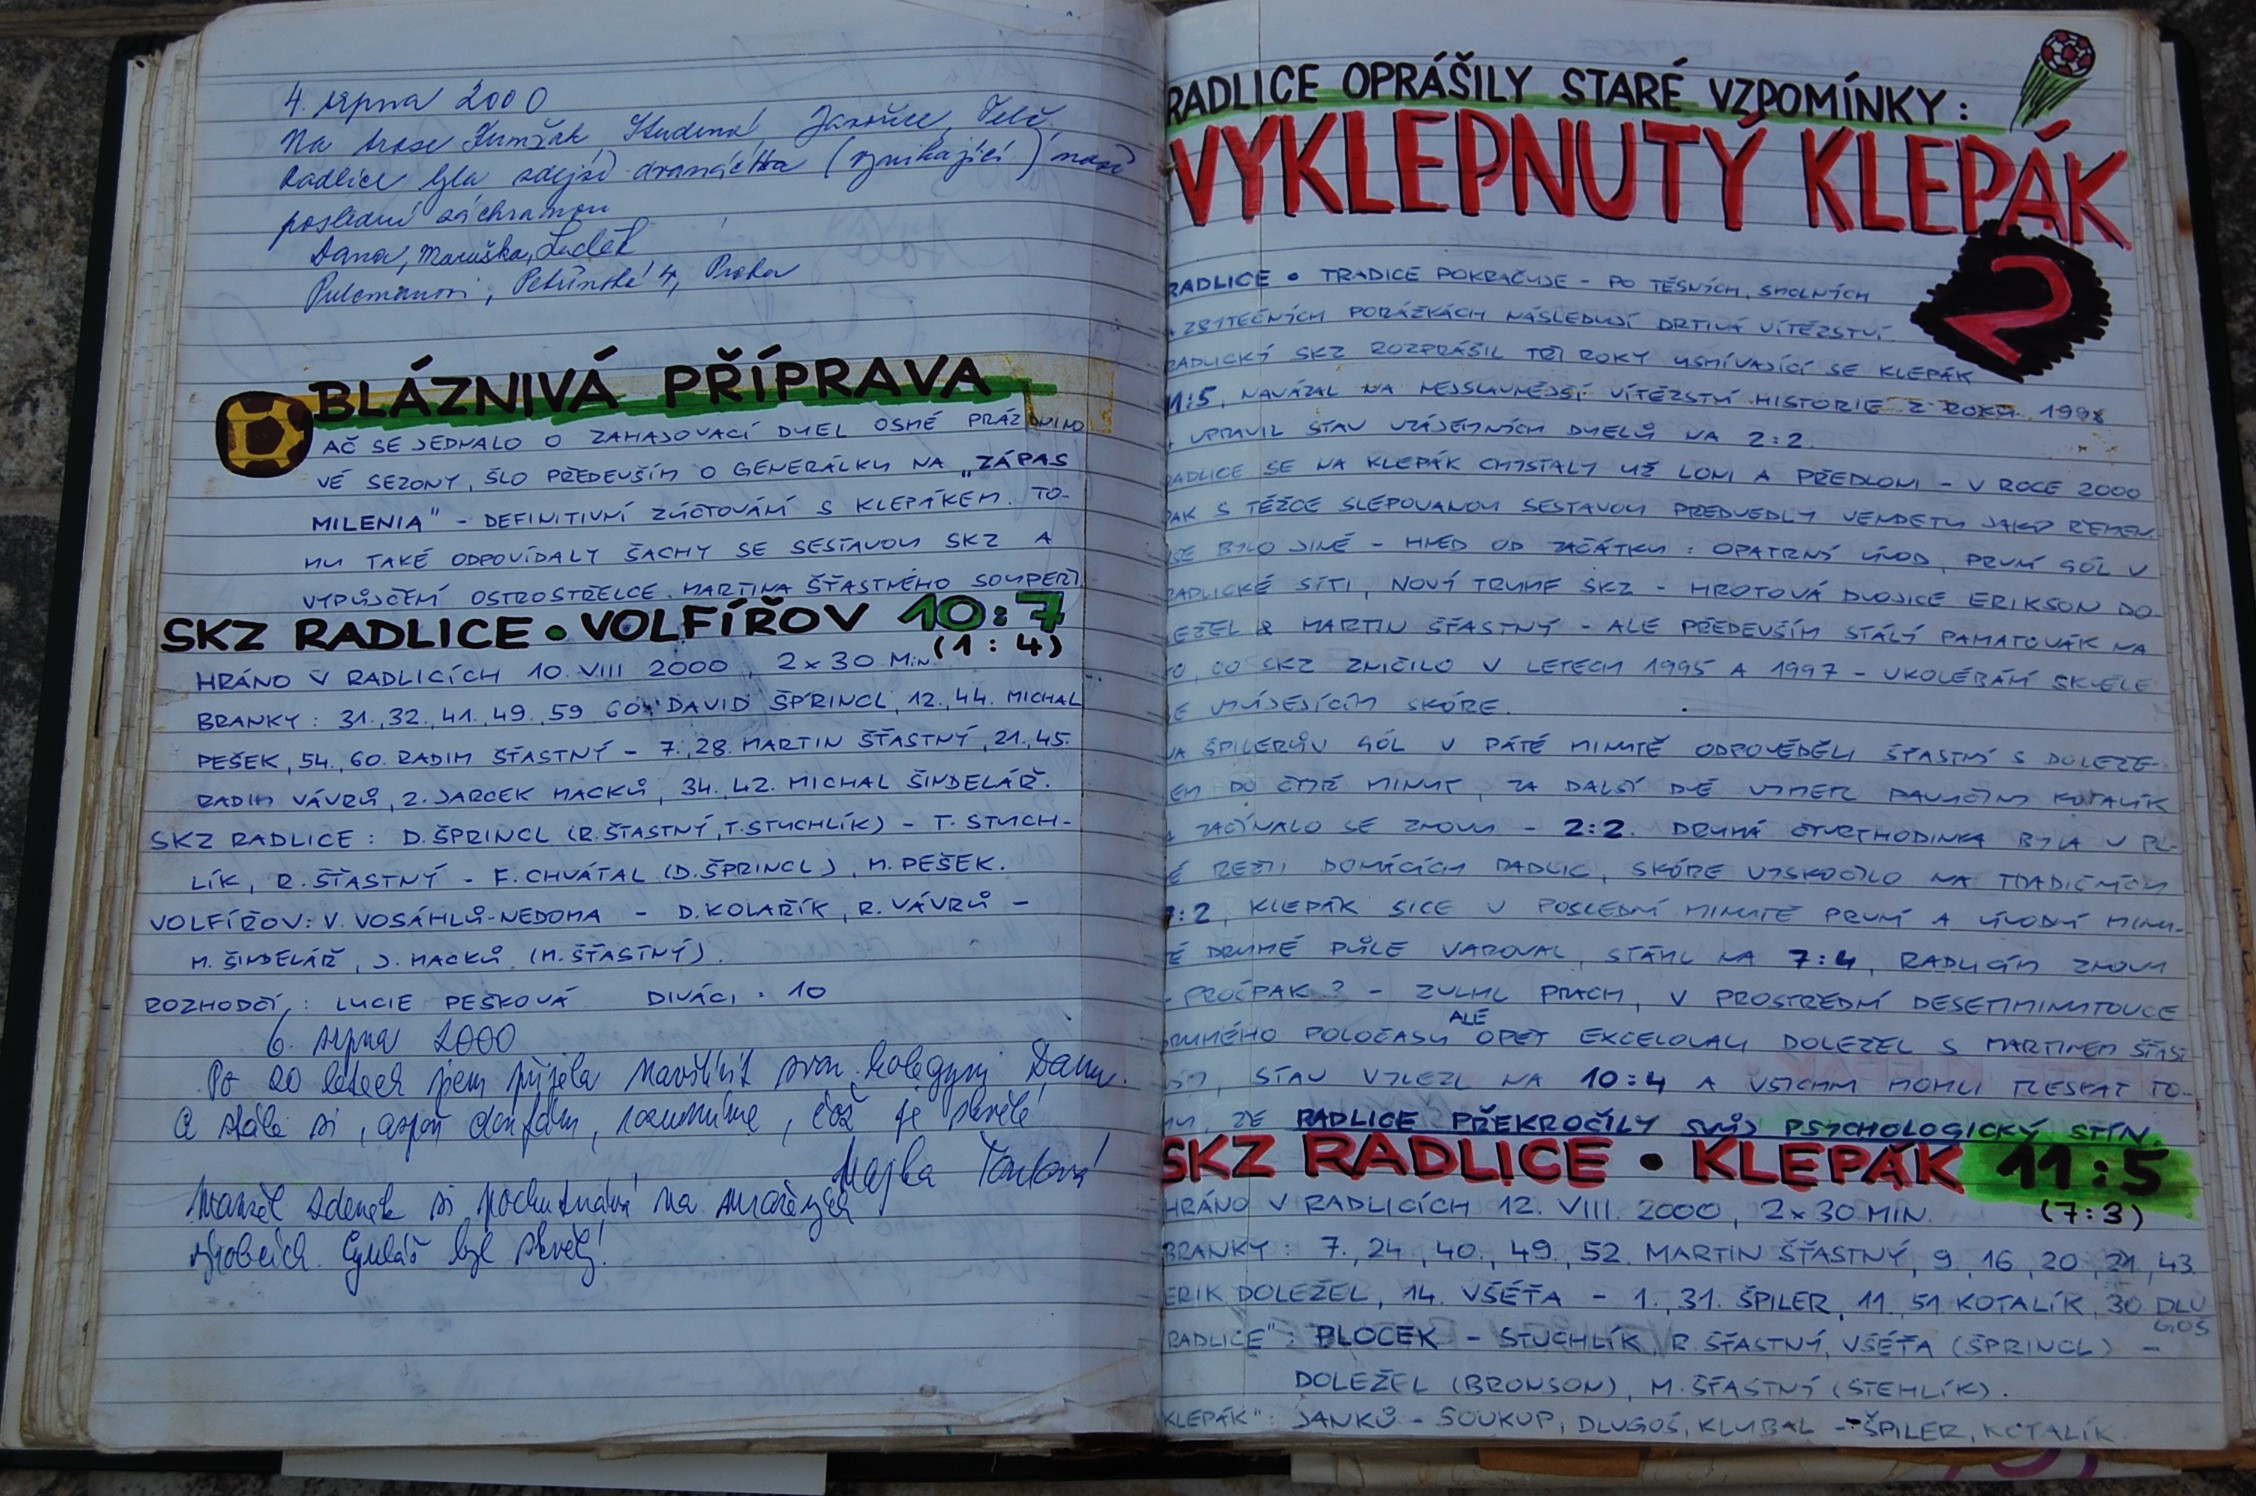 4. srpna 2000
Na trase Kumžák, Studená, Jarošice, Telč
Radlice byla zdejší (vznikající) naší
poslední záchranou
Dana, Maruška, Luděk
Petřínská 4, Praha
BLÁZNIVÁ PŘÍPRAVA
AČ SE JEDNALO O ZAHAJOVACÍ DUEL OSMÉ PRÁZDNINO
VÉ SEZONY, ŠLO PŘEDEVŠÍM O GENERÁLKU NA „ZÁPAS
MILENIA" - DEFINITIVNÍ ZÚČTOVÁNÍ S KLEPÁKEM. TO-
MU TAKÉ ODPOVÍDALY ŠACHY SE SESTAVOU SKZ A
VYPŮJČENÍ OSTROSTŘELCE MARTINA ŠŤASTNÉHO SOUPEŘI.
SKZ RADLICE • VOLFÍŘOV 10:7
(1:4)
HRÁNO V RADLICÍCH 10. VIII 2000, 2x30 MIN.
BRANKY: 31., 32., 41., 49., 59 60. DAVID ŠPRINCL, 12., 44. MICHAL
PEŠEK, 54., 60. RADIM ŠŤASTNÝ - 7., 28. MARTIN ŠŤASTNÝ, 21., 45.
RADIM VÁVRŮ, 2. JARCEK MACKŮ, 34., 42. MICHAL ŠINDELÁŘ.
SKZ RADLICE: D. ŠPRINCL (R. ŠŤASTNÝ, T. STUCHLÍK) - T. STUCH-
LÍK, R. ŠŤASTNÝ - F. CHVÁTAL (D. ŠPRINCL), M. PEŠEK.
VOLFÍŘOV: V. VOSÁHLŮ-NEDOMA - D. KOLAŘÍK, R. VÁVRŮ -
M. ŠINDELÁŘ, J. MACKŮ (M. ŠŤASTNÝ).
ROZHODČÍ: LUCIE PEŠKOVÁ DIVÁCI: 10
6. srpna 2000
Po 20 letech jsem přijela navštívit svou kolegyni Danu.
a stále si, aspoň doufám, rozumíme, což je skvělé
Majka
Manžel Zdenek si pochutnává na
výrobcích. Guláš byl skvělý!
RADLICE OPRÁŠILY STARÉ VZPOMÍNKY:
VYKLEPNUTÝ KLEPÁK
2
RADLICE • TRADICE POKRAČUJE - PO TĚSNÝCH, SMOLNÝCH
A ZBYTEČNÝCH PORÁŽKÁCH NÁSLEDUJÍ DRTIVÁ VÍTĚZSTVÍ.
RADLICKÝ SKZ ROZPRÁŠIL TŘI ROKY USMÍVAJÍCÍ SE KLEPÁK
11:5, NAVÁZAL NA NEJSLAVNĚJŠÍ VÍTĚZSTVÍ HISTORIE Z ROKU 1998
A UPRAVIL STAV VZÁJEMNÝCH DUELŮ NA 2:2.
RADLICE SE NA KLEPÁK CHYSTALY UŽ LONI A PŘEDLONI - V ROCE 2000
PAK S TĚŽCE SLEPOVANOU SESTAVOU PŘEDVEDLY VENDETU JAKO ŘEMEN.
VŠE BYLO JINÉ - HNED OD ZAČÁTKU: OPATRNÝ ÚVOD, PRVNÍ GÓL V
RADLICKÉ SÍTI, NOVÝ TRUMF SKZ - HROTOVÁ DVOJICE ERIKSON DO-
LEŽEL & MARTIN ŠŤASTNÝ - ALE PŘEDEVŠÍM STÁLÝ PAMATOVÁK NA
TO, CO SKZ ZNIČILO V LETECH 1995 A 1997 - UKOLÉBÁNÍ SKVĚLE
SE VYVÍJEJÍCÍM SKÓRE.
NA ŠPILERŮV GÓL V PÁTÉ MINUTĚ ODPOVĚDĚLI ŠŤASTNÝ S DOLEŽE-
LEM DO ČTYŘ MINUT, ZA DALŠÍ DVĚ VYMETL PAVUČINU KOTALÍK
A ZAČÍNALO SE ZNOVU - 2:2. DRUHÁ ČTVRTHODINKA BYLA V PL-
NÉ REŽII DOMÁCÍCH RADLIC, SKÓRE VYSKOČILO NA TRADIČNÍCH
7:2, KLEPÁK SICE V POSLEDNÍ MINUTĚ PRVNÍ A ÚVODNÍ MINU-
TĚ DRUHÉ PŮLE VAROVAL, STÁHL NA 7:4, RADLICÍM ZNOVU
- PROČPAK? - ZVLHL PRACH, V PROSTŘEDNÍ DESETIMINUTOVCE
DRUHÉHO POLOČASU ALE OPĚT EXCELOVALI DOLEŽEL S MARTINEM ŠŤAST
NÝM, STAV VYLEZL NA 10:4 A VŠICHNI MOHLI TLESKAT TO-
MU, ŽE RADLICE PŘEKROČILY SVŮJ PSYCHOLOGICKÝ STÍN.
SKZ RADLICE • KLEPÁK 11:5
(7:3)
HRÁNO V RADLICÍCH 12. VIII. 2000, 2x30 MIN.
BRANKY: 7., 24., 40., 49., 52. MARTIN ŠŤASTNÝ, 9., 16., 20., 21., 43.
ERIK DOLEŽEL, 14. VŠÉŤA - 1., 31. ŠPILER, 11., 51 KOTALÍK, 30. DLU
GOŠ
RADLICE": BLOCEK - STUCHLÍK, R. ŠŤASTNÝ, VŠÉŤA (ŠPRINCL) -
DOLEŽEL (BRONSON), M. ŠŤASTNÝ (STEHLÍK).
KLEPÁK": JANKŮ - SOUKUP, DLUGOŠ, KLUBAL - ŠPILER, KOTALÍK.